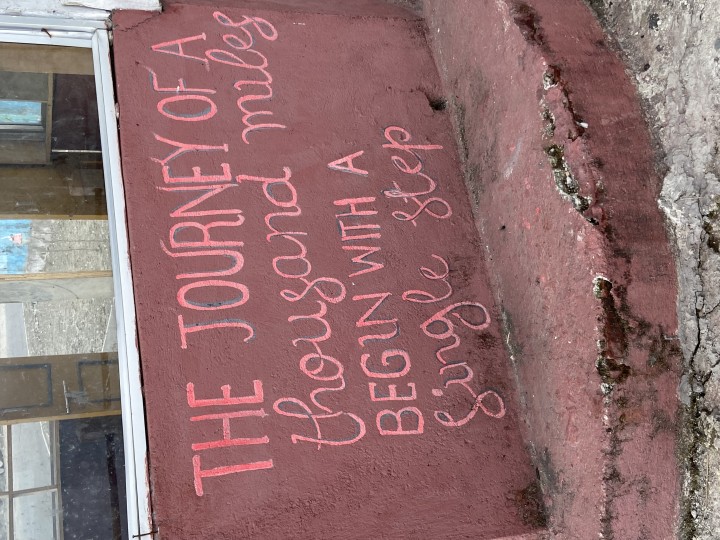 THE JOURNEY OF A
thousand miles
BEGIN WITH A
single step